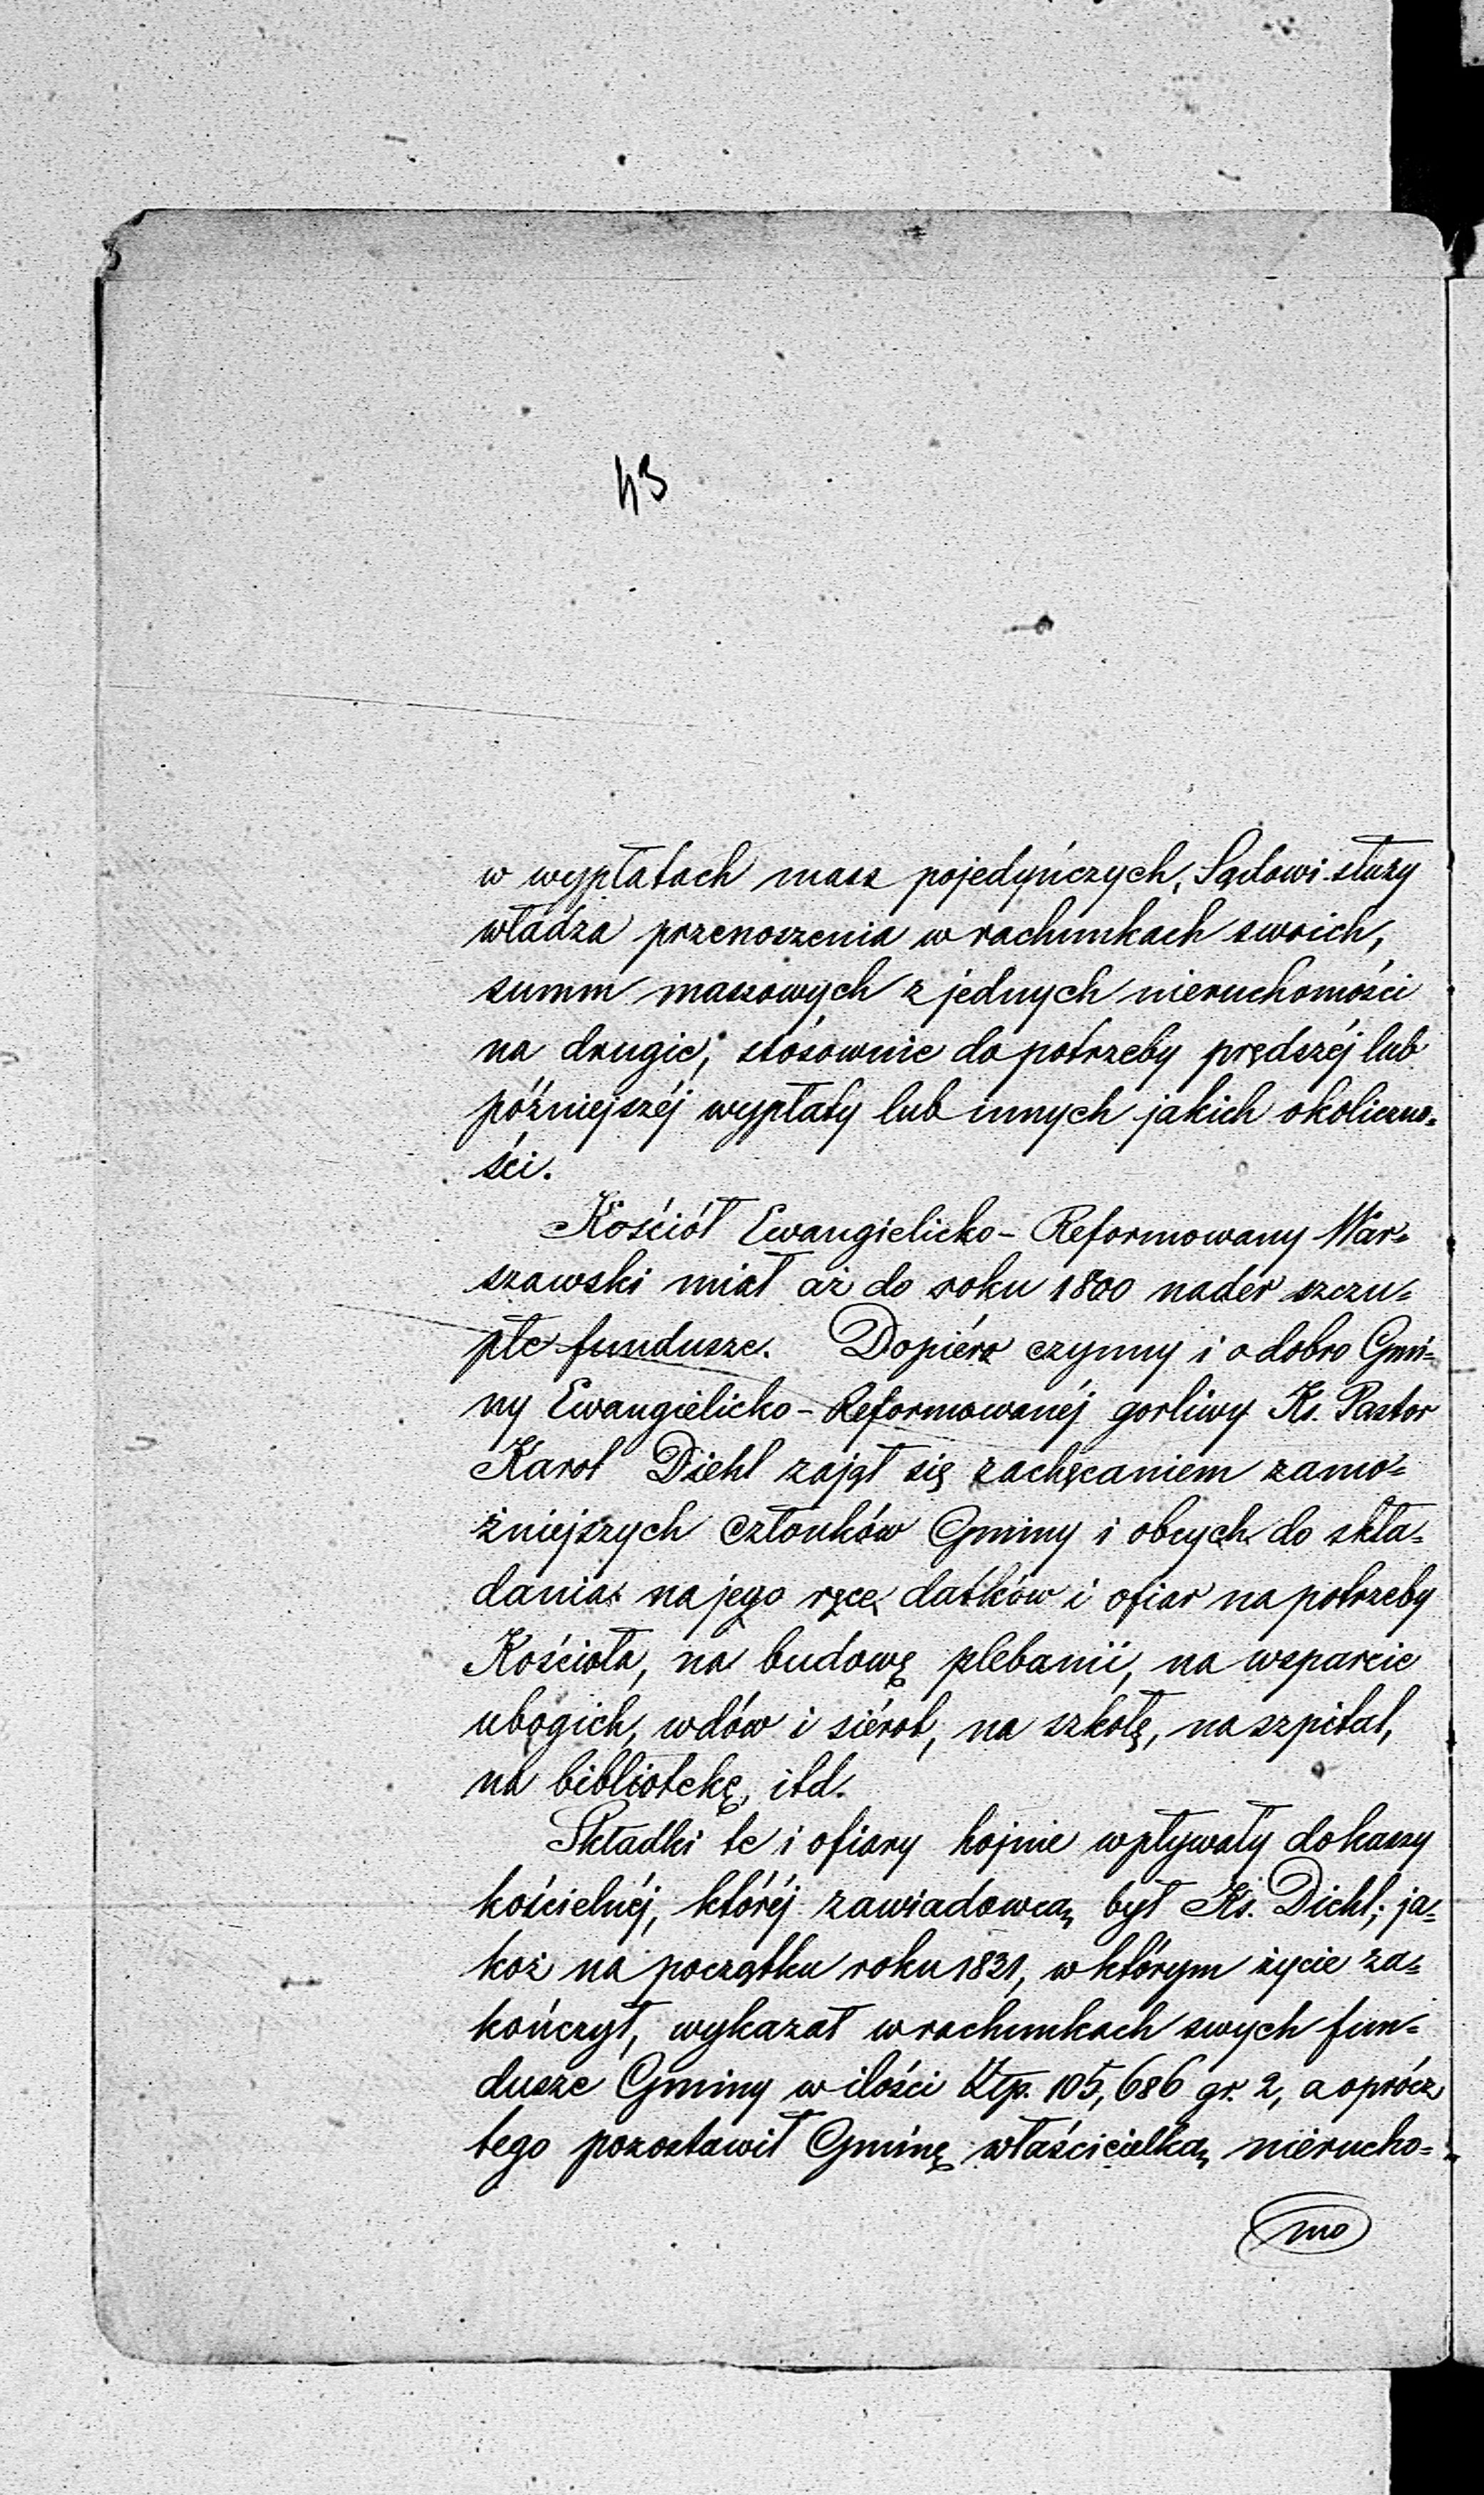 43
w wypłatach mass pojedyńczych, Sądowi służy
władza przenoszenia w rachunkach swoich,
summ massowych z jednych nieruchomości
na drugie, stósownie do potrzeby prędszéj lub
późniejszéj wypłaty lub innych jakich okoliczno=
ści.
Kościół Ewangielicko-Reformowany War=
szawski miał aż do roku 1800 nader szczu=
płe fundusze. Dopiéro czynny i o dobro Gmi=
ny Ewangielicko-Reformowanéj gorliwy Ks. Pastor
Karol Diehl zajął się zachęcaniem zamo=
żniejszych członków Gminy i obcych do skła=
dania na jego ręce datków i ofiar na potrzeby
Kościoła, na budowę plebanii, na wsparcie
ubogich, wdów i siérot, na szkołę, na szpital,
na bibliotekę, itd.
Składki te i ofiary hojnie wpływały do kassy
kościelnéj, któréj zawiadowcą był Ks. Diehl; ja=
koż na początku roku 1831, w którym życie za=
kończył, wykazał w rachunkach swych fun=
dusze Gminy w ilości Złp. 105,686 gr. 2, a oprócz
tego pozostawił Gminę właścicielką nierucho=
mo